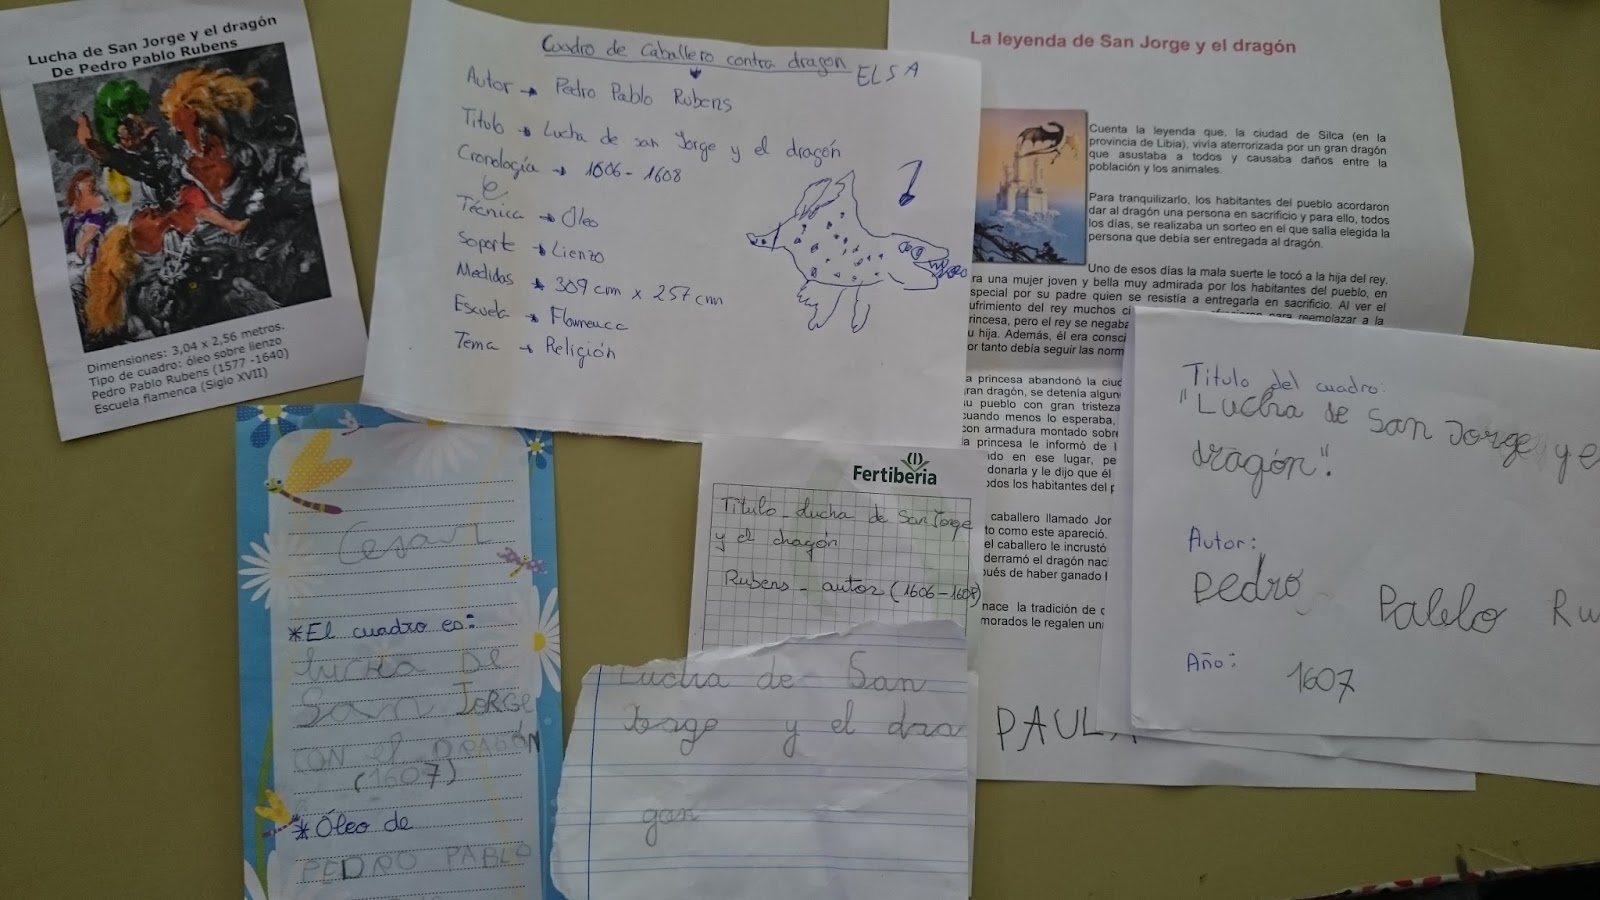 Lucha de San Jorge y el dragón
De Pedro Pablo Rubens
Dimensiones: 3,04 x 2,56 metros.
Tipo de cuadro: óleo sobre lienzo
Pedro Pablo Rubens (1577 -1640)
Escuela flamenca (Siglo XVII)
Cuadro de Caballero contra dragón ELSA
Autor → Pedro Pablo Rubens
Titulo → Lucha de san Jorge y el dragón
Cronología → 1606 - 1608
Técnica → Óleo
Soporte → Lienzo
Medidas → 309 cm x 257 cm
Escuela → Flamenca
Tema → Religión
La leyenda de San Jorge y el dragón
Cuenta la leyenda que, la ciudad de Silca (en la
provincia de Libia), vivía aterrorizada por un gran dragón
que asustaba a todos y causaba daños entre la
población y los animales.
Para tranquilizarlo, los habitantes del pueblo acordaron
dar al dragón una persona en sacrificio y para ello, todos
los días, se realizaba un sorteo en el que salía elegida la
persona que debía ser entregada al dragón.
Uno de esos días la mala suerte le tocó a la hija del rey.
ra una mujer joven y bella muy admirada por los habitantes del pueblo, en
special por su padre quien se resistía a entregarla en sacrificio. Al ver el
ufrimiento del rey muchos reemplazar a la
rincesa, pero el rey se negaba
u hija. Además, él era consci
or tanto debía seguir las norm
a princesa abandonó la ciud
ran dragón, se detenía algun
u pueblo con gran tristeza
cuando menos lo esperaba,
con armadura montado sobre
la princesa le informó de l
ndo en ese lugar, pe
donarla y le dijo que él
odos los habitantes del p
caballero llamado Jor
to como este apareció.
el caballero le incrustó
derramó el dragón nac
pués de haber ganado l
nace la tradición de c
morados le regalen un
PAULA
Titulo del cuadro:
"Lucha de San Jorge y e
dragón".
Autor:
Pedro Pablo Ru
Año: 1607
Fertiberia
Titulo - Lucha de San Jorge
y el dragón
Rubens - autor (1606-1608)
Cesar L
*El cuadro es:
LUCHA DE
San JORGE
CON el DRAGÓN
(1607)
*Óleo de
PEDRO PABLO
Lucha de San
Jorge y el dra
gon